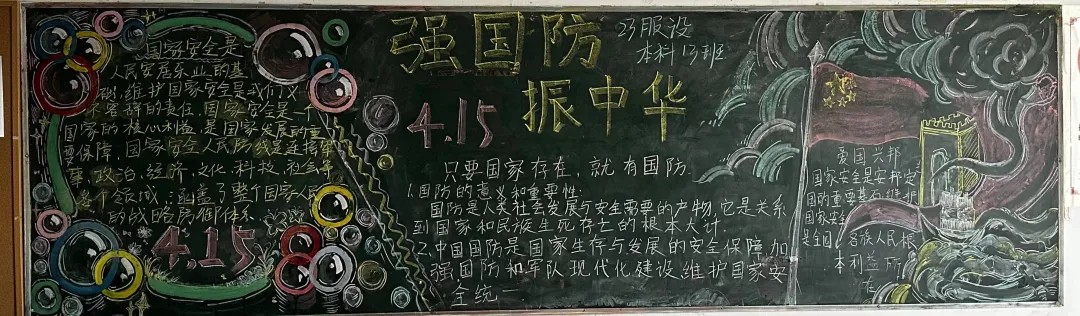 国家安全是
人民安居乐业的基
础,维护国家安全是我们义
不容辞的责任,国家安全是一个
国家的核心利益,是国家发展的重
要保障,国家安全人民防线是连接军
事,政治,经济,文化,科技,社会等
各个领域;涵盖了整个国家人民
的战略防御体系
4.15
强国防
振中华
23服设
本科13班
4.15
只要国家存在,就有国防.
1.国防的意义和重要性:
国防是人类社会发展与安全需要的产物,它是关系
到国家和民族生死存亡的根本大计.
2.中国国防是国家生存与发展的安全保障,加
强国防和军队现代化建设,维护国家安
全统一
爱国兴邦
国家安全是安邦定
国的重要基石,维护
国家安全
是全国各族人民根
本利益所
在